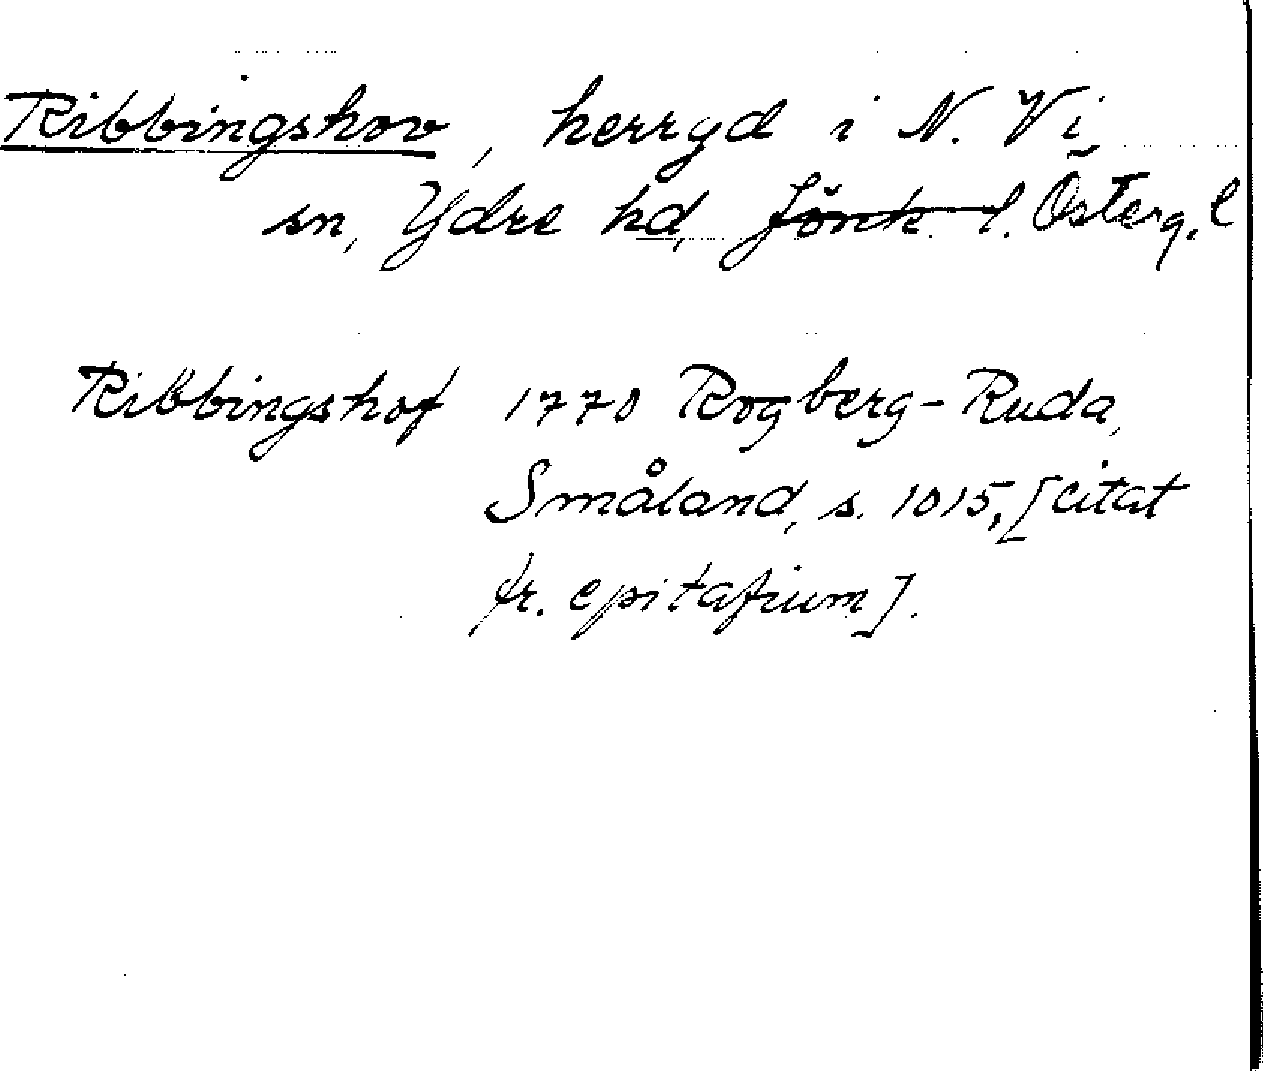 Ribbingshov, herryd i N. Vi
sn, Ydre hd, Jönk. l. Österg. l
Ribbingshof 1770 Rogberg-Ruda,
Småland, s. 1015, [citat
fr. epitafium].